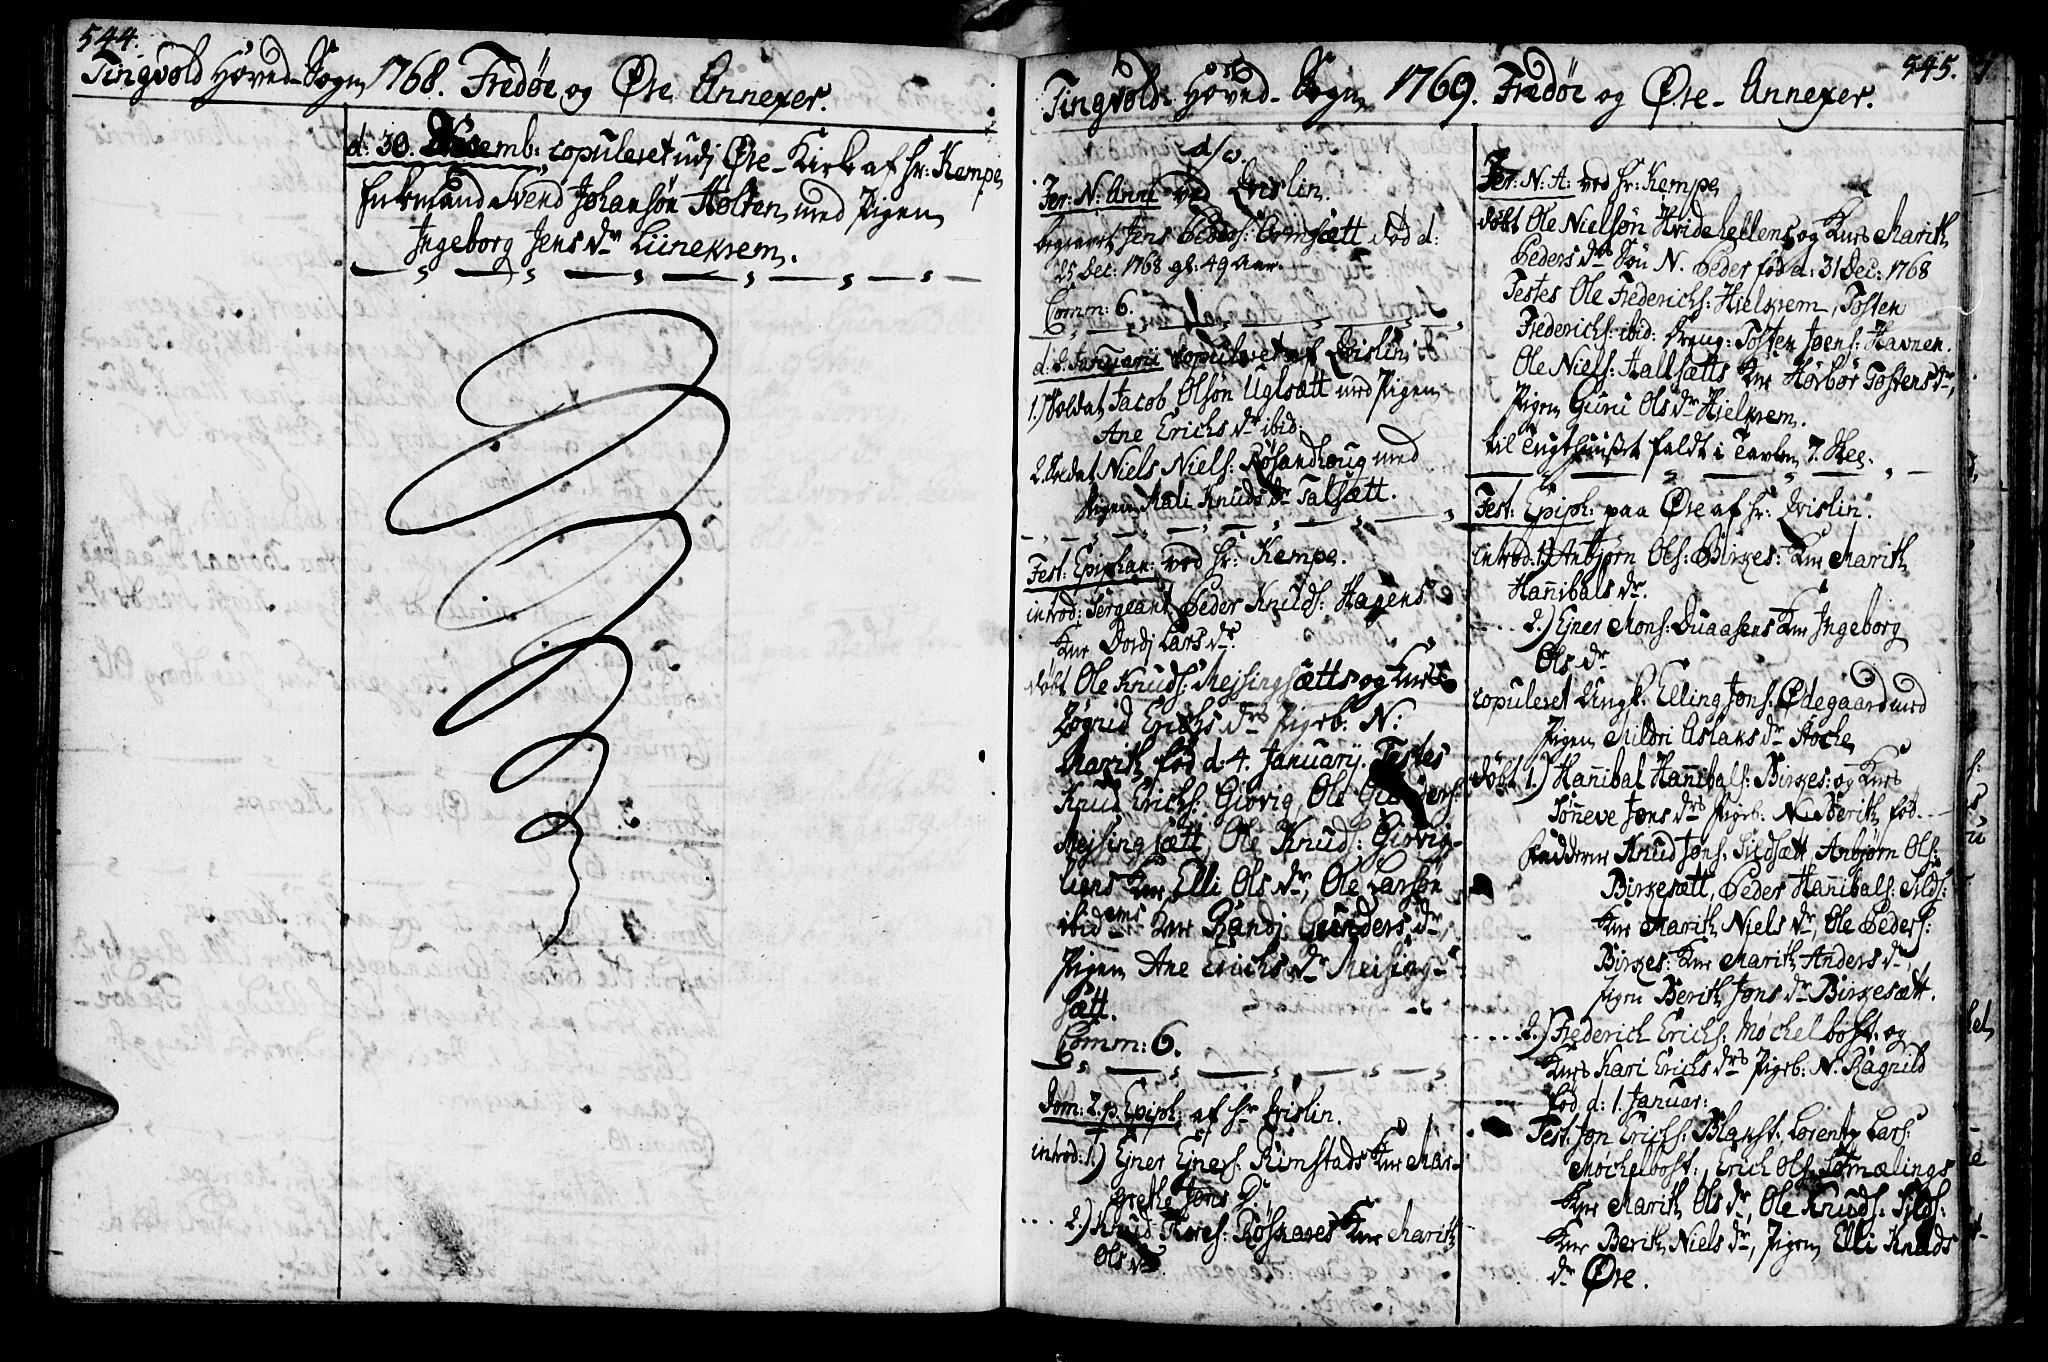 544.
Tingvold Hoved-Sogn 1768. Fredøe og Øre Annexer.
d: 30. Decemb: copuleret udj Øre-Kirke af hr: Kempe
Enkemand Svend Johansøn Holten med Pigen
Ingeborg Jens dr Lünekrem.
545.
Tingvold Hoved-Sogn 1769. Fredøe og Øre-Annexer.
Fer: N. Anni ved
begravet Jens Peders: død d:
25 Dec: 1768 gl: 49 Aar.
Comm: 6.
d: 2. Januarii copuleret af
1.) Soldat Jacob Olsøn Uglsætt med Pigen
Ane Erichs dr ibid:
2. Soldat Niels Niels: Røsandhoug med
Pigen Mali Knuds dr Talsætt.
Fest: Epiphan: ved hr: Kempe.
introd: Sergeant Peder Knuds: Hagens
Kне Dordj Lars dr.
døbt Ole Knuds: Mejsingsætts og Kнes
Zøgrid Erichs drs Pigeb: N:
Marith fød d: 4. Januarij. Testes
Knud Erichs: Giøvig, Ole Gunders:
Mejsingsætt, Ole Knuds: Giøvig-
liens Kne Elli Ols dr, Ole Larsøn
ibidems Kne Randj Gunders dr,
Pigen Ane Erichs dr Meising-
sætt.
Comm: 6.
Dom: 2. p. Epiph: af hr
introd: 1.) Ejner Ejners: Rimstads Kne Mar-
grethe Jøns Dr
.... 2.) Knud Tores: Røskares Kne Marith
Ols dr.
Fer: N: A: ved hr: Kempe
døbt Ole Nielsøn Hvidehellens og Knes Marith
Peders drs Søn N. Peder fød d: 31 Dec: 1768
Testes Ole Frederichs: Hielkrem, Tosten
Frederichs: ibid: Dreng: Tosten Joens: Havnen.
Ole Niels: Hallsætts Kne Høvbor Tostens dr,
Pigen Guru Ols dr Hielkrem.
til Tugthuuset faldt i Tavlen 7. Sk.
Fest: Epiph: paa Øre af hr:
introd: 1.) Anbjørn Ols: Birkes: Kne Marith
Hañibals dr.
.... 2.) Ejner Mons: Duaasens Kne Ingeborg
Ols dr
copuleret Ungk. Elling Jons: Ødegaard med
Pigen Mildri Aslaks dr
døbt 1.) Hañibal Hañibals: Birkes: og Knes
Søñeve Jøns drs Pigeb: N. Berith fød.
Faddere Knud Jons: Sildsætt, Anbjørn Ols:
Birkesætt, Peder Hañibals: Silds:
Kne Marith Niels dr, Ole Peders:
Birkes: Kne Marith Anders dr,
Pigen Berith Jøns dr Birkesætt.
.... 2.) Frederich Erichs: Møchelbost: og
Knes Kari Erichs drs Pigeb: N. Ragnild
fød d: 1. Januar:
Test: Jon Erichs: Blakst: Lorentz Lars:
Møchelbost:, Erich Ols:
Kne Marith Ols dr, Ole Knuds: Silds:
Kne Berith Niels dr, Pigen Elli Knuds
dr Øre.